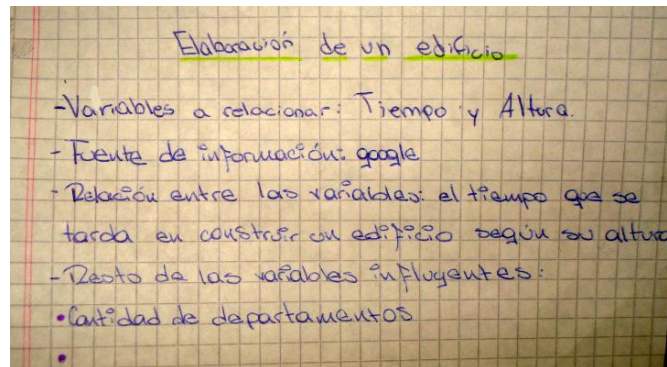 Elaboración de un edificio
-Variables a relacionar: Tiempo y Altura.
- Fuente de información: google
- Relación entre las variables: el tiempo que se
tarda en construir un edificio según su altura
- Resto de las variables influyentes:
• Cantidad de departamentos
•